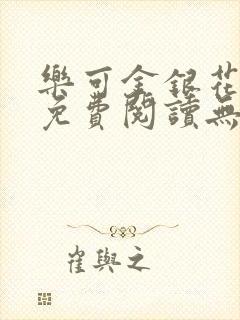 樂可金銀花
免費閱讀無
崔與之